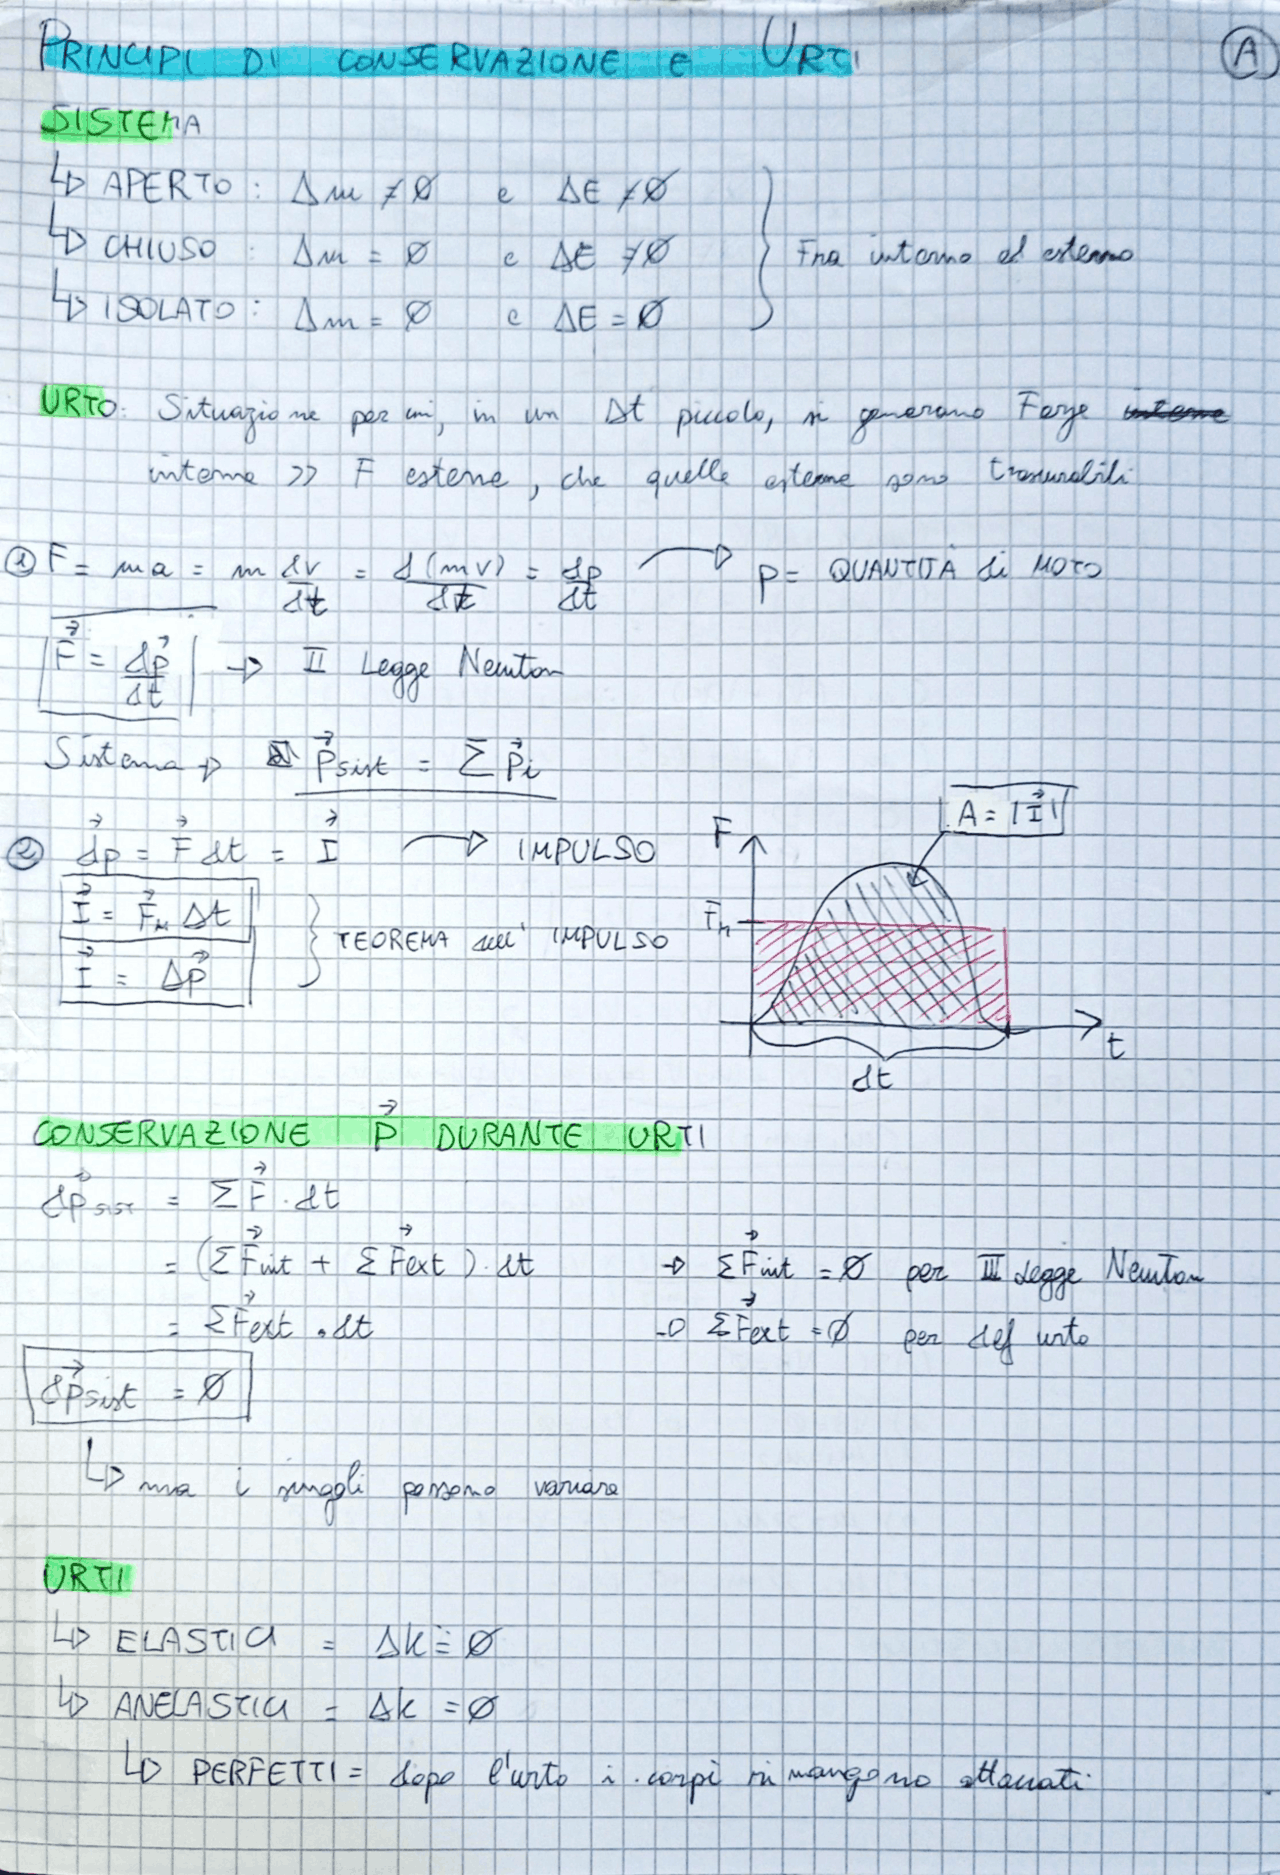 PRINCIPI DI CONSERVAZIONE E URTI
A
SISTEMA
↳ APERTO : Δm ≠ ∅ e ΔE ≠ ∅
↳ CHIUSO : Δm = ∅ e ΔE ≠ ∅
Fra interno ed esterno
↳ ISOLATO : Δm = ∅ e ΔE = ∅
URTO: Situazione per cui, in un Δt piccolo, si generano Forze interne
interne >> F esterne, che quelle esterne sono trascurabili
① F = ma = m dv/dt = d(mv)/dt = dp/dt → p = QUANTITÀ di MOTO
F⃗ = dp⃗/dt → II Legge Newton
Sistema → P⃗sist = Σ P⃗i
② dp⃗ = F⃗ dt = I⃗ → IMPULSO
I⃗ = F⃗M Δt
I⃗ = Δp⃗
TEOREMA dell' IMPULSO
A = |I⃗|
F
FM
t
dt
CONSERVAZIONE P⃗ DURANTE URTI
dp⃗sist = ΣF⃗ · dt
= (ΣF⃗int + ΣF⃗ext) · dt → ΣF⃗int = ∅ per III Legge Newton
= ΣF⃗ext · dt → ΣF⃗ext = ∅ per def urto
dp⃗sist = ∅
↳ ma i singoli possono variare
URTI
↳ ELASTICI = Δk = ∅
↳ ANELASTICI = Δk = ∅
↳ PERFETTI = dopo l'urto i corpi rimangono attaccati